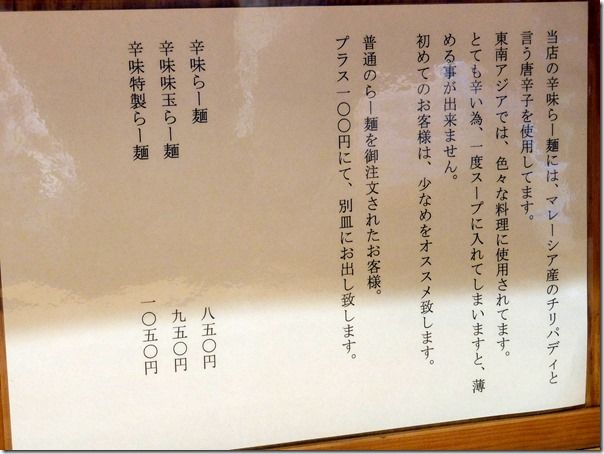 当店の辛味らー麺には、マレーシア産のチリパディと
言う唐辛子を使用してます。
東南アジアでは、色々な料理に使用されてます。
とても辛い為、一度スープに入れてしまいますと、薄
める事が出来ません。
初めてのお客様は、少なめをオススメ致します。
普通のらー麺を御注文されたお客様。
プラス一〇〇円にて、別皿にお出し致します。
辛味らー麺 八五〇円
辛味味玉らー麺 九五〇円
辛味特製らー麺 一〇五〇円